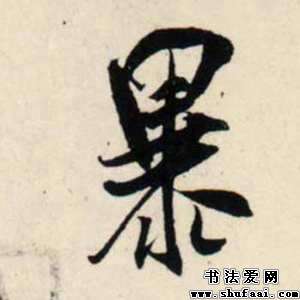 暴
书法爱网
www.shufaai.com